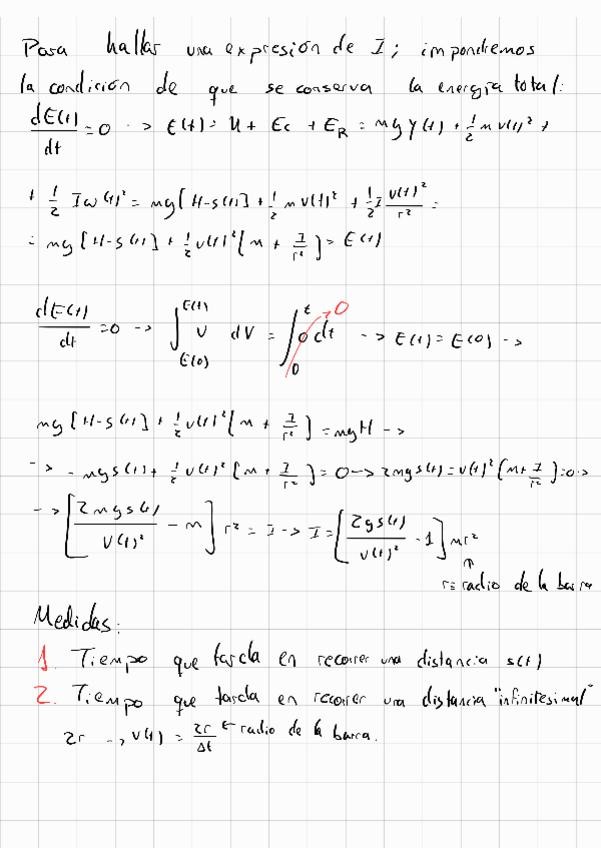 Para hallar una expresión de I; impondremos
la condición de que se conserva la energía total:
dE(t)/dt = 0 -> E(t) = U + Ec + E_R = mg y(t) + 1/2 m v(t)² +
+ 1/2 I ω(t)² = mg [H-s(t)] + 1/2 m v(t)² + 1/2 I v(t)²/r² =
= mg [H-s(t)] + 1/2 v(t)² [m + I/r²] = E(t)
dE(t)/dt = 0 -> ∫_{E(0)}^{E(t)} U dV = ∫_0^t 0 dt → 0 -> E(t) = E(0) ->
mg [H-s(t)] + 1/2 v(t)² [m + I/r²] = mgH ->
-> - mg s(t) + 1/2 v(t)² [m + I/r²] = 0 -> 2mgs(t) = v(t)² (m + I/r²) = 0 ->
-> [2mgs(t)/v(t)² - m] r² = I -> I = [2gs(t)/v(t)² - 1] mr²
↑
r = radio de la barra
Medidas:
1. Tiempo que tarda en recorrer una distancia s(t)
2. Tiempo que tarda en recorrer una distancia "infinitesimal"
2r -> v(t) = 2r/Δt ← radio de la barra.